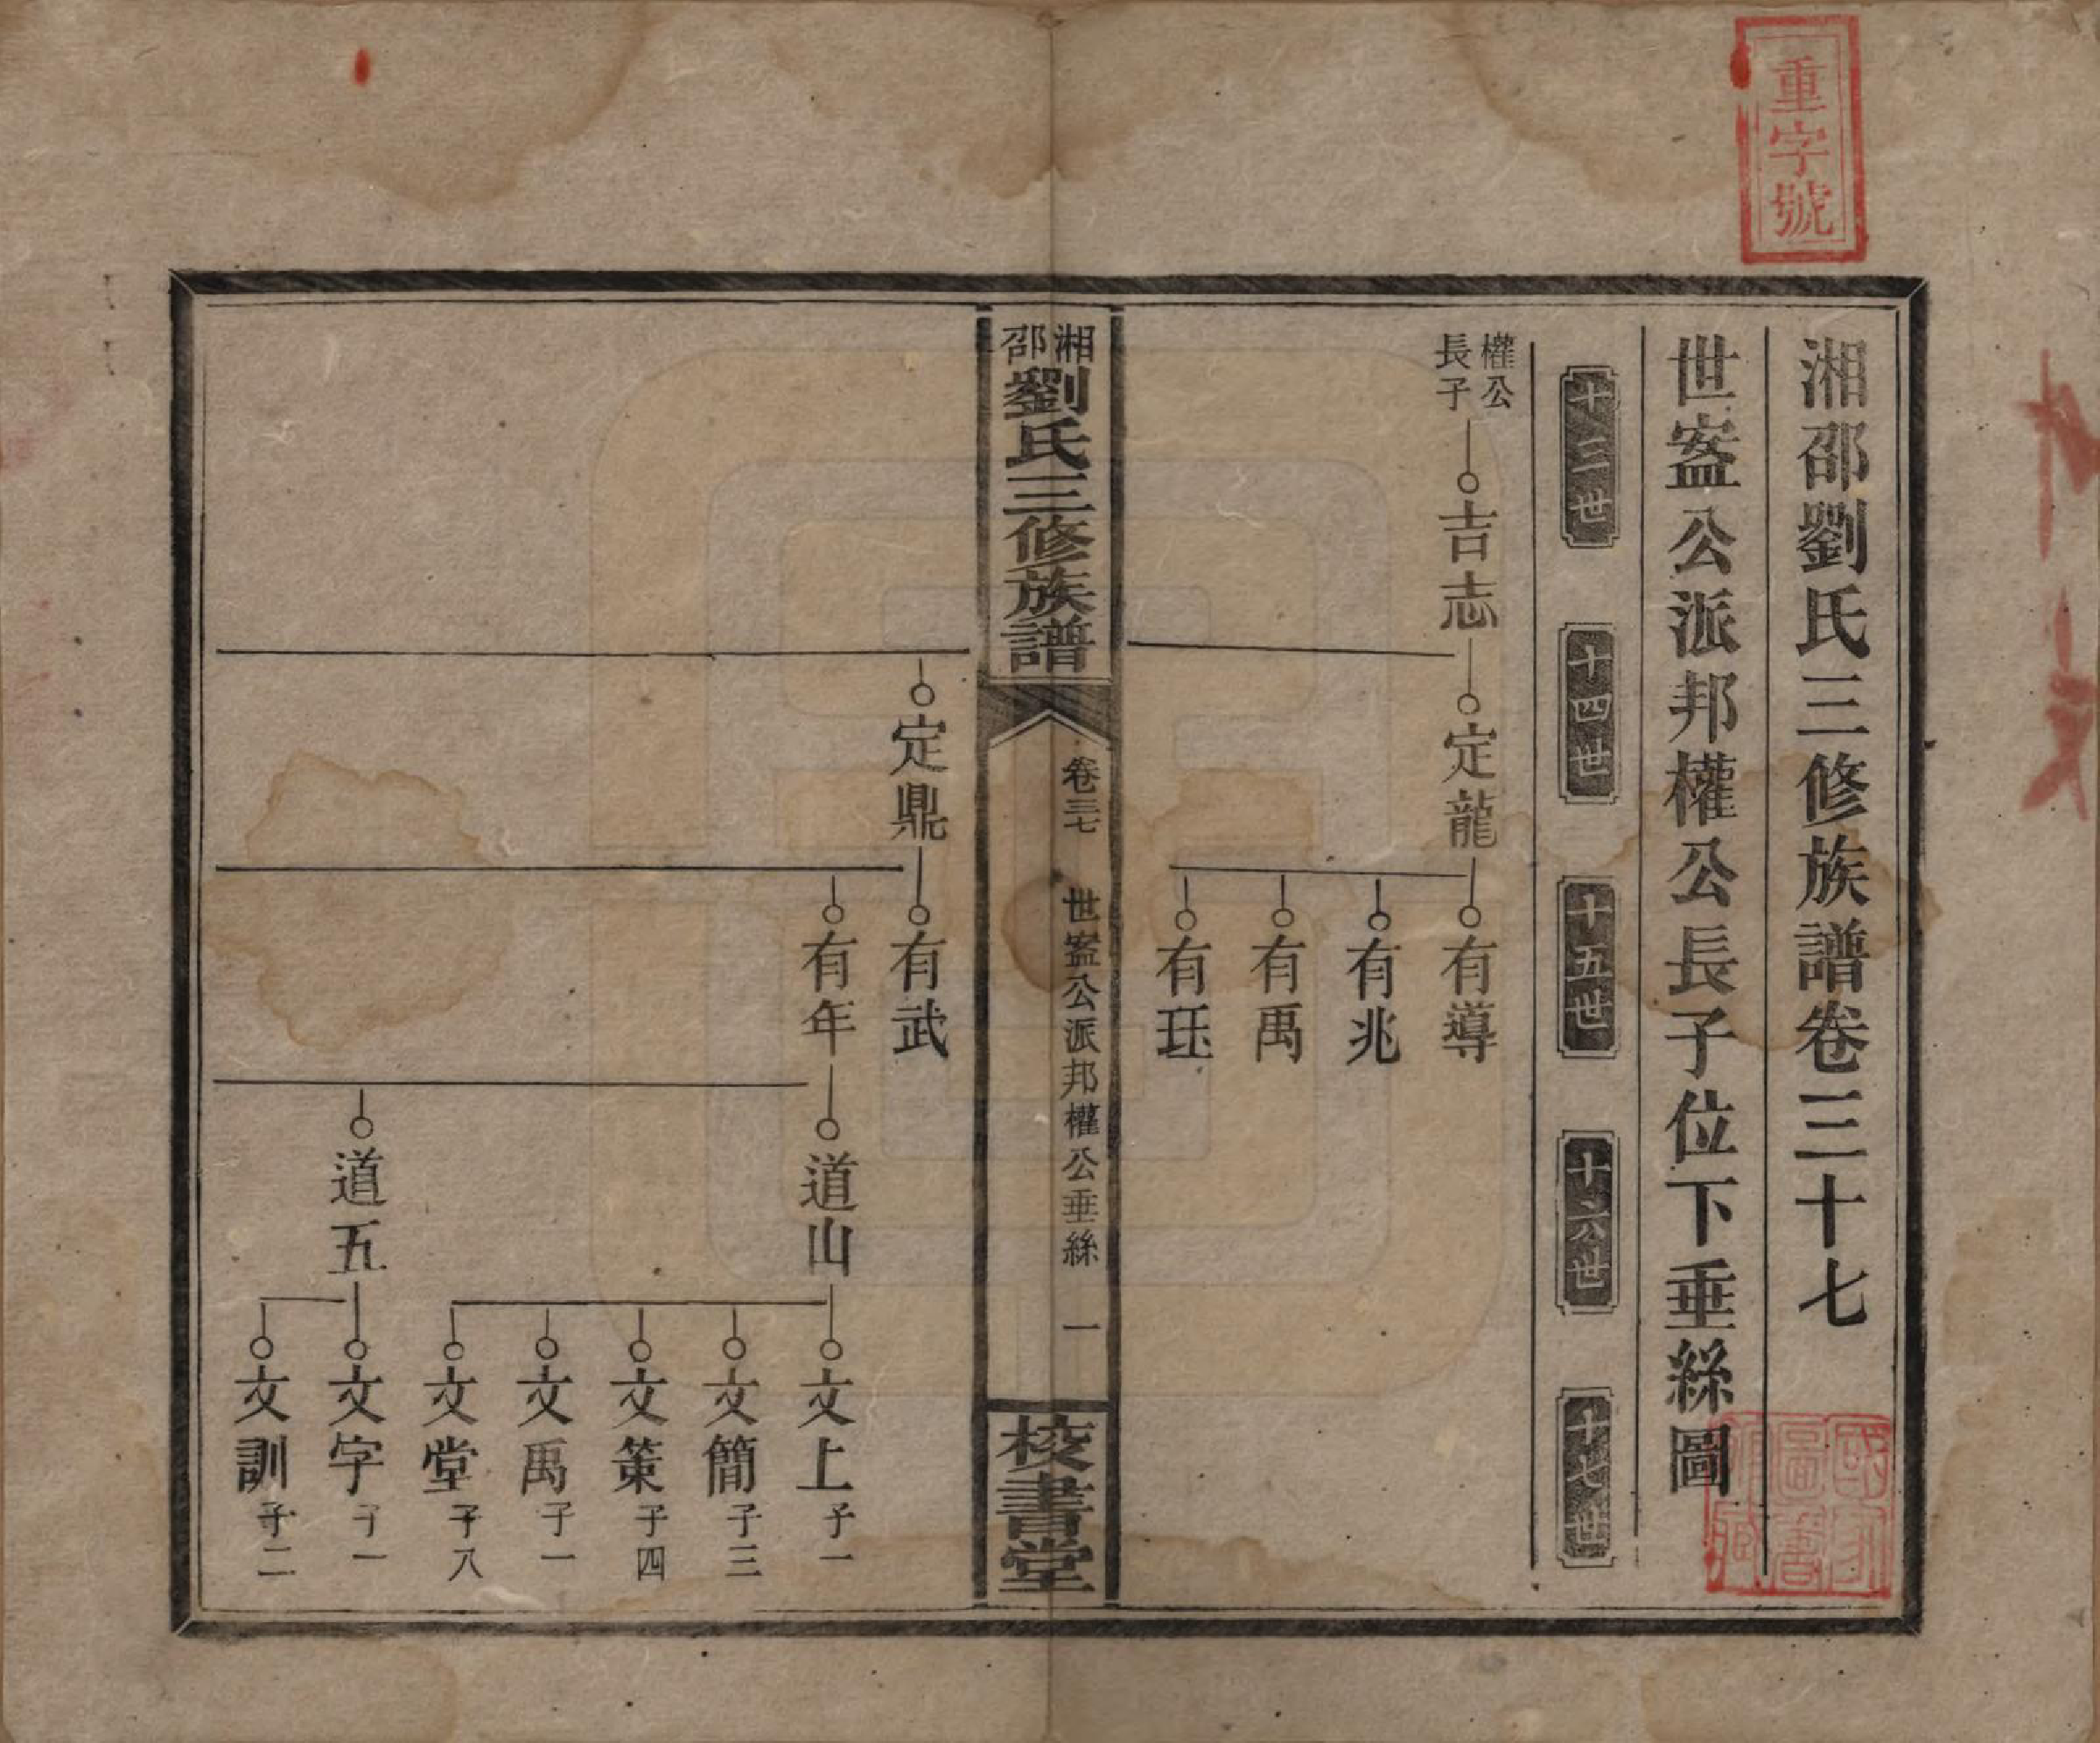 重字號
湘邵劉氏三修族譜卷三十七
世盇公派邦權公長子位下垂絲圖
十三世
十四世
十五世
十六世
十七世
權公
長子
吉志
定龍
有導
有兆
有禹
有珏
湘邵劉氏三修族譜
卷三七
世盇公派邦權公垂絲
一
校書堂
定鼎
有武
有年
道山
文上 子一
文簡 子三
文策 子四
文禹 子一
文堂 子八
道五
文字 子一
文訓 子二